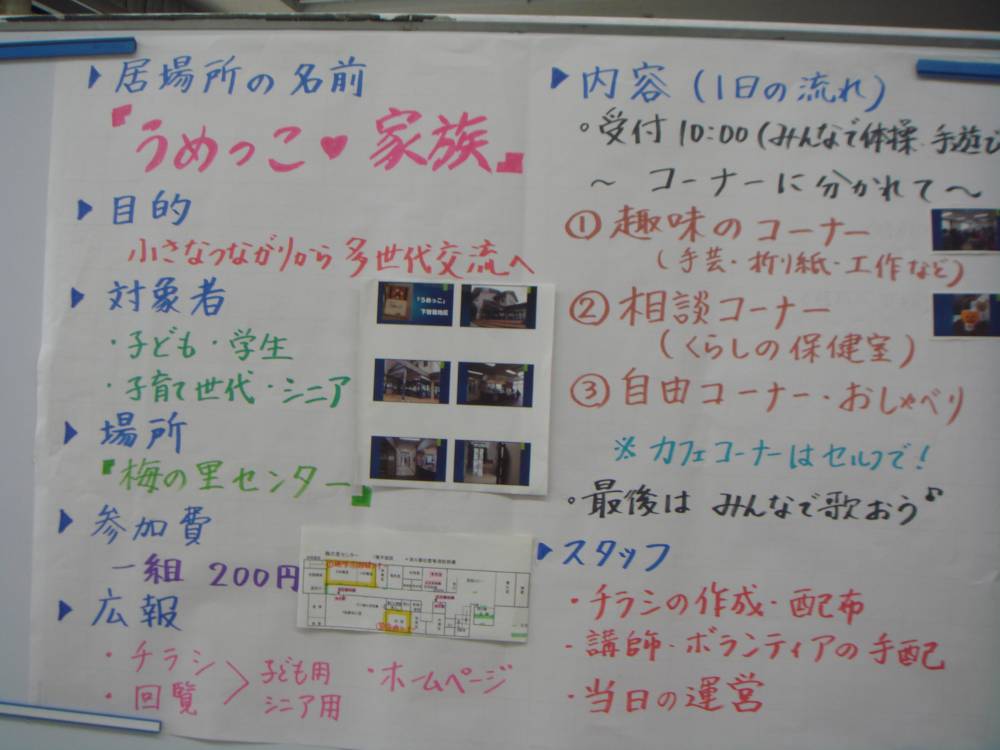 ▶居場所の名前
『うめっこ♥家族』
▶目的
小さなつながりから多世代交流へ
▶対象者
・子ども・学生
・子育て世代・シニア
▶場所
『梅の里センター』
▶参加費
一組 200円
▶広報
・チラシ
・回覧
＞
子ども用
シニア用
・ホームページ
「うめっこ」
▶内容(1日の流れ)
。受付 10:00(みんなで体操 手遊び
～コーナーに分かれて～
①趣味のコーナー
(手芸・折り紙・工作など)
②相談コーナー
(くらしの保健室)
③自由コーナー・おしゃべり
※カフェコーナーはセルフで!
。最後はみんなで歌おう♪
▶スタッフ
・チラシの作成・配布
・講師・ボランティアの手配
・当日の運営